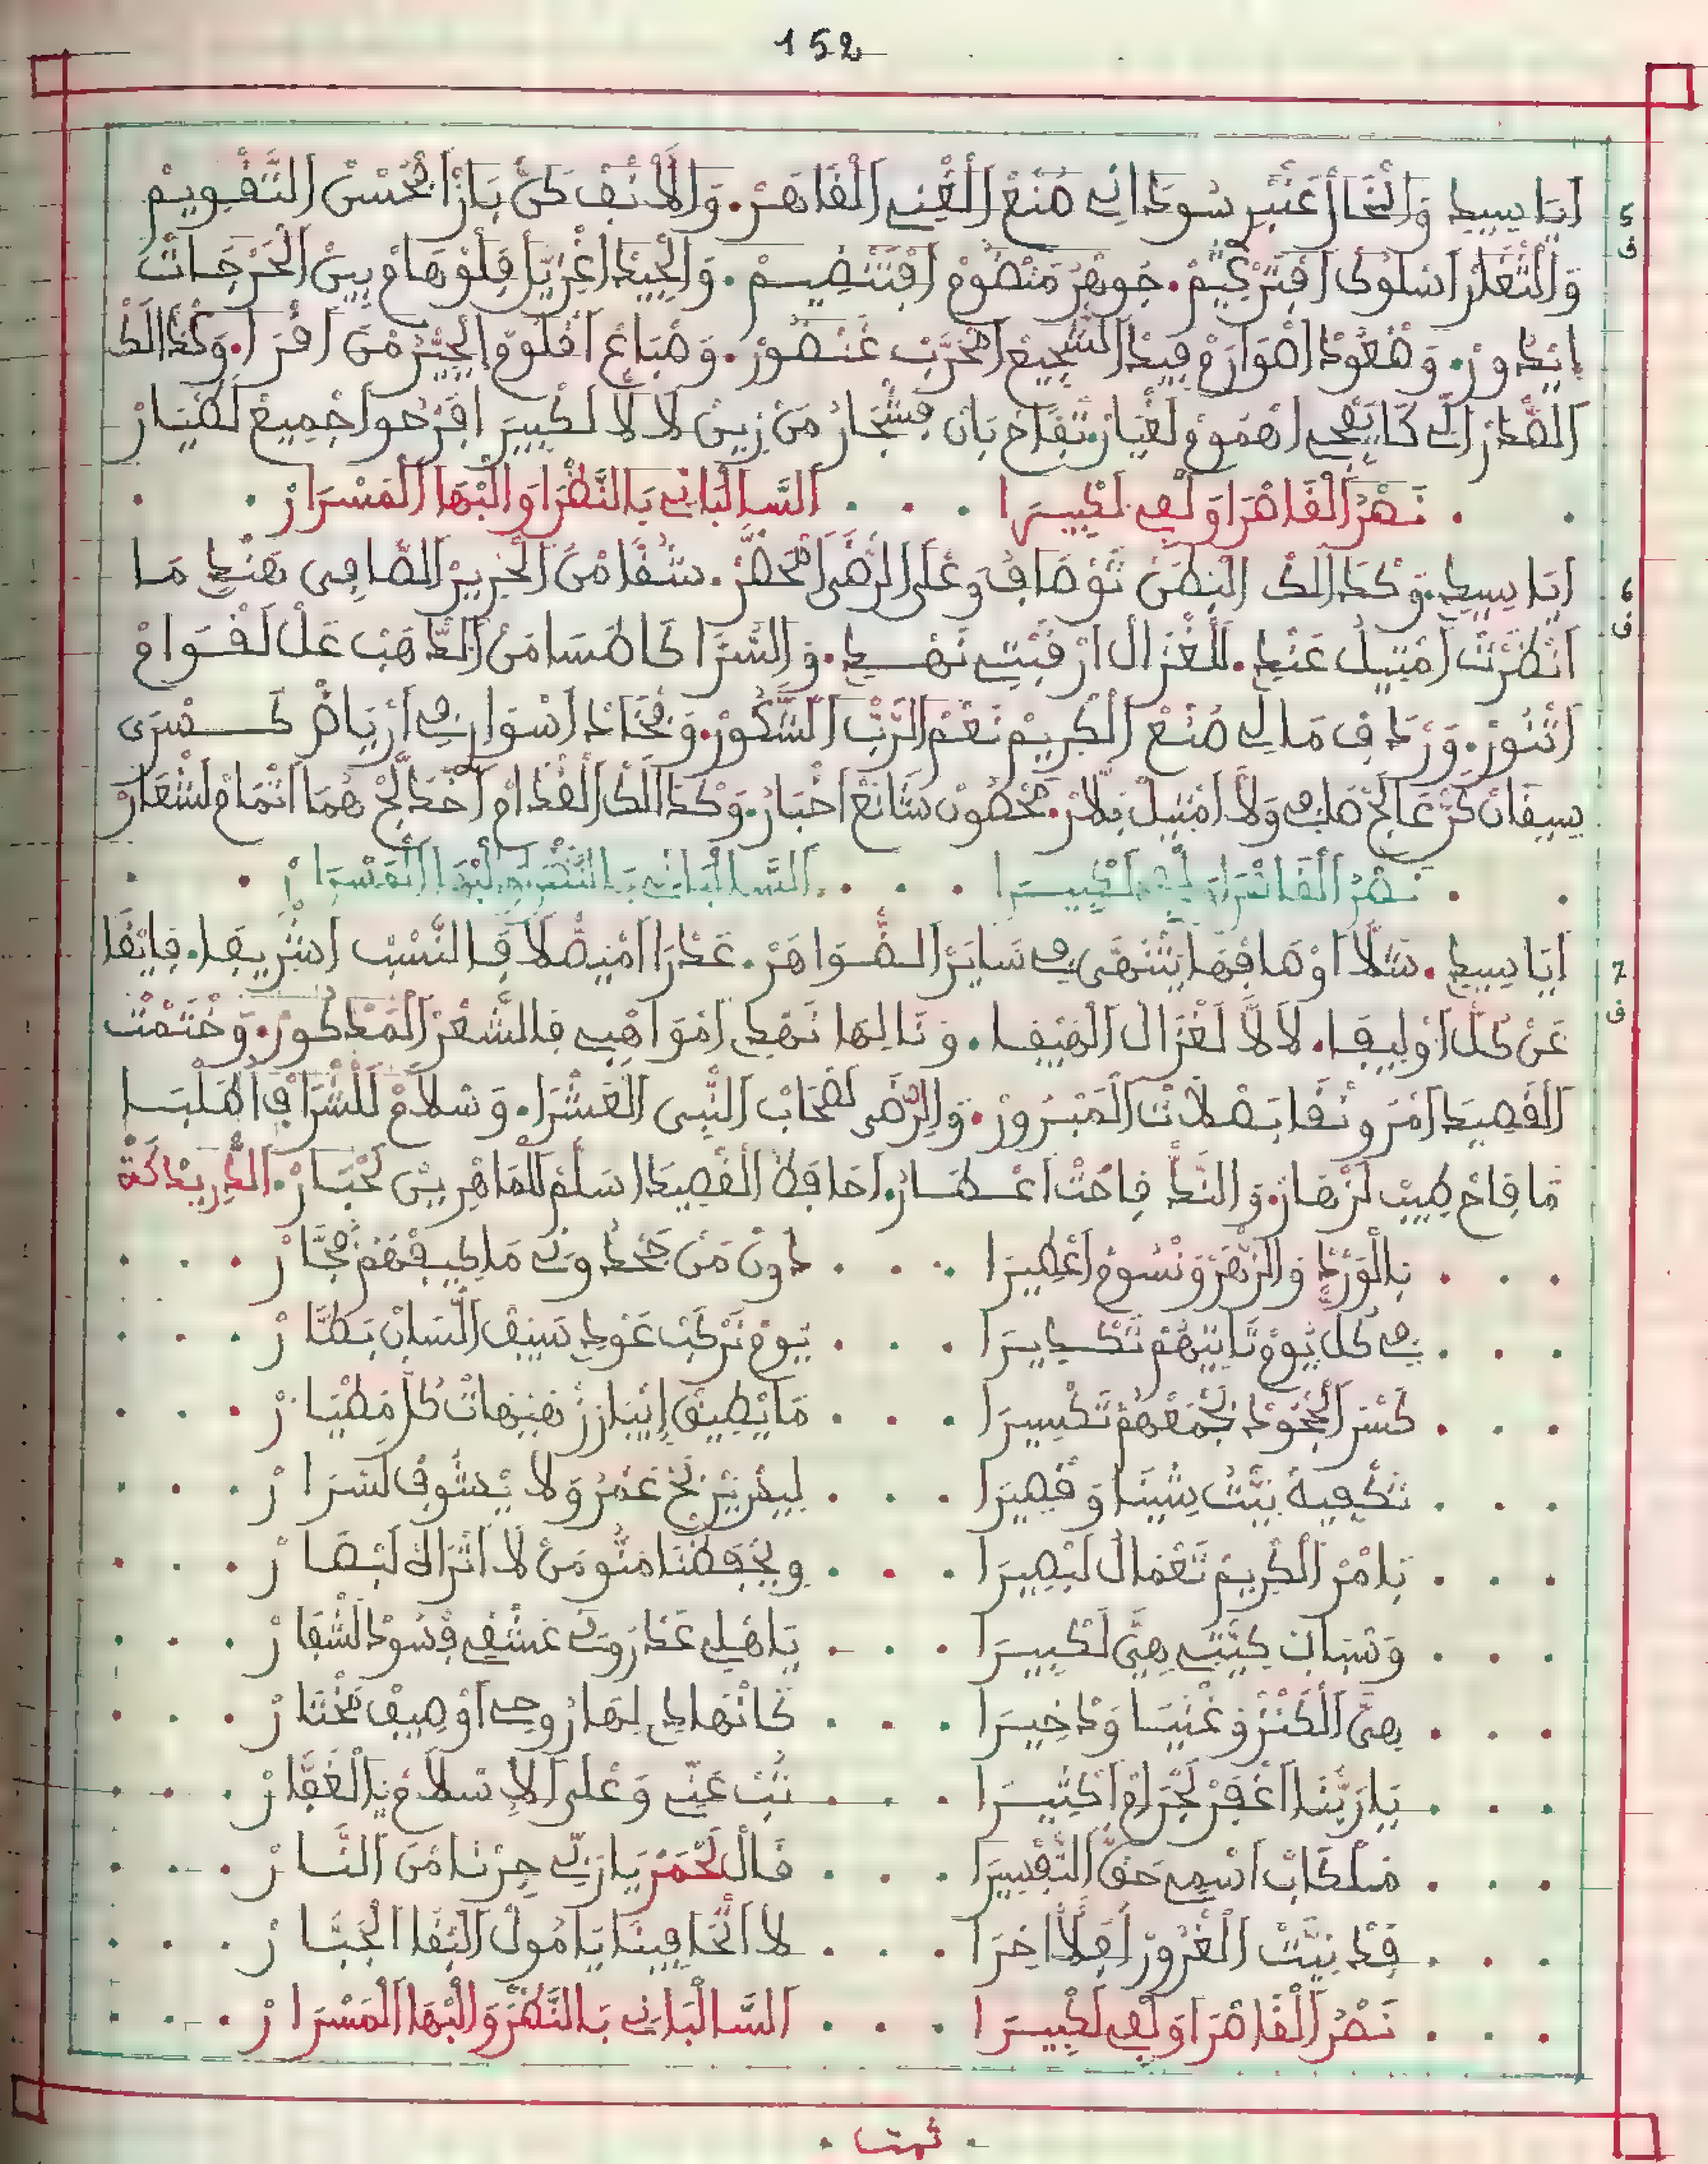 152
5 أيا سيدي والخال عنبر سوداني صنع الغني القاهر. والأنف كن باز الحسن التقويم
ف والثغار اسلوك افترڭيم. جوهر منضوم افتنضيم. والجيد اغزيل فلوهام بين الحرجات
إيدور. وصعود اصوارم فيد الشجيع امحرب عنصور. وصباع اقلوم الجير من اقرا. وكذالك
الصدر الي كا يفجي اهموم لغيار تفاح بان فشجار من زين لالا لكبير افرحوا جميع لصيار
نصر القاهرا ولفي لكبيرا . . . السالباني بالنظرا والبها المسرار
6 أيا سيدي. وكذالك البطن توصاف وعلى الرضى امحضر. شقا من الحرير الصافي هندي ما
ف انظرت امتيل عندي. للغزال ارقبتي نهدي. والسرا كا طسا من الذهب عل لقوام
اتنور. وردف مالي صنع الكريم نعم الرب الشكور. وفخاد اسواري في أرياض كسرى
سيقان كر عالج صافي ولا امتيل بلار. مخصون شانع اخبار. وكذالك القدام اخدلج هما اتمام لشعار
نصر القاهرا ولفي لكبيرا . . . السالباني بالنظرا والبها المسرار
7 أيا سيدي. شلا اوصافها يتنهى في ساير الضواهر. عدرا امنيصلا فالنسب اشريفا. فايقا
ف عن كل اوليفا. لالا لغزال الهيفا. و نا ليها نهدي امواهبي فالشعر المذكور. وختمت
القصيدا مرونقا بصلات المبرور. والرضى لصحاب النبي العشرا. وسلام للشراف اهلبا
ما فاح طيب لزهار. والند فاحت اعطار. احافظ القصيدا سلم للماهرين لحبار. الدريدكة
بالورد والزهر ونسوم اعطيرا . . . دون من جحدوني ما كيفهم فجار
في كل يوم تاتيهم تكديرا . . . يوم نركب عودي سيف اللسان بطار
كسر الجحود بجمعهم تكسيرا . . . ما يطيق إيبارز نهيهات كل مطيار
تكفيه بيت شينا وقصيرا . . . ليدريرخ عمر ولا يشوف لسرار
بامر الكريم تعمال لبصيرا . . . ويحفظنا منو من لا اتراه لبصار
وشان كيتي هي لكبيرا . . . ياهلي عدروني عشقي فسود الشفار
هي الكنز وغنيا ودخيرا . . . كانهادي لها روحي اوصيف مختار
يا ربنا اغفر لجرام اكثيرا . . . تب عني وعلى الاسلام يا الغفار
فلكتاب اسمي حق التفسيرا . . . قال لحمر يا ربي جرنا من النار
قد بيت الغرور أفلا اخرا . . . لا اتخافينا يا مول البقا الجبار
نصر القاهرا ولفي لكبيرا . . . السالباني بالنظر والبها المسرار
. تمت .